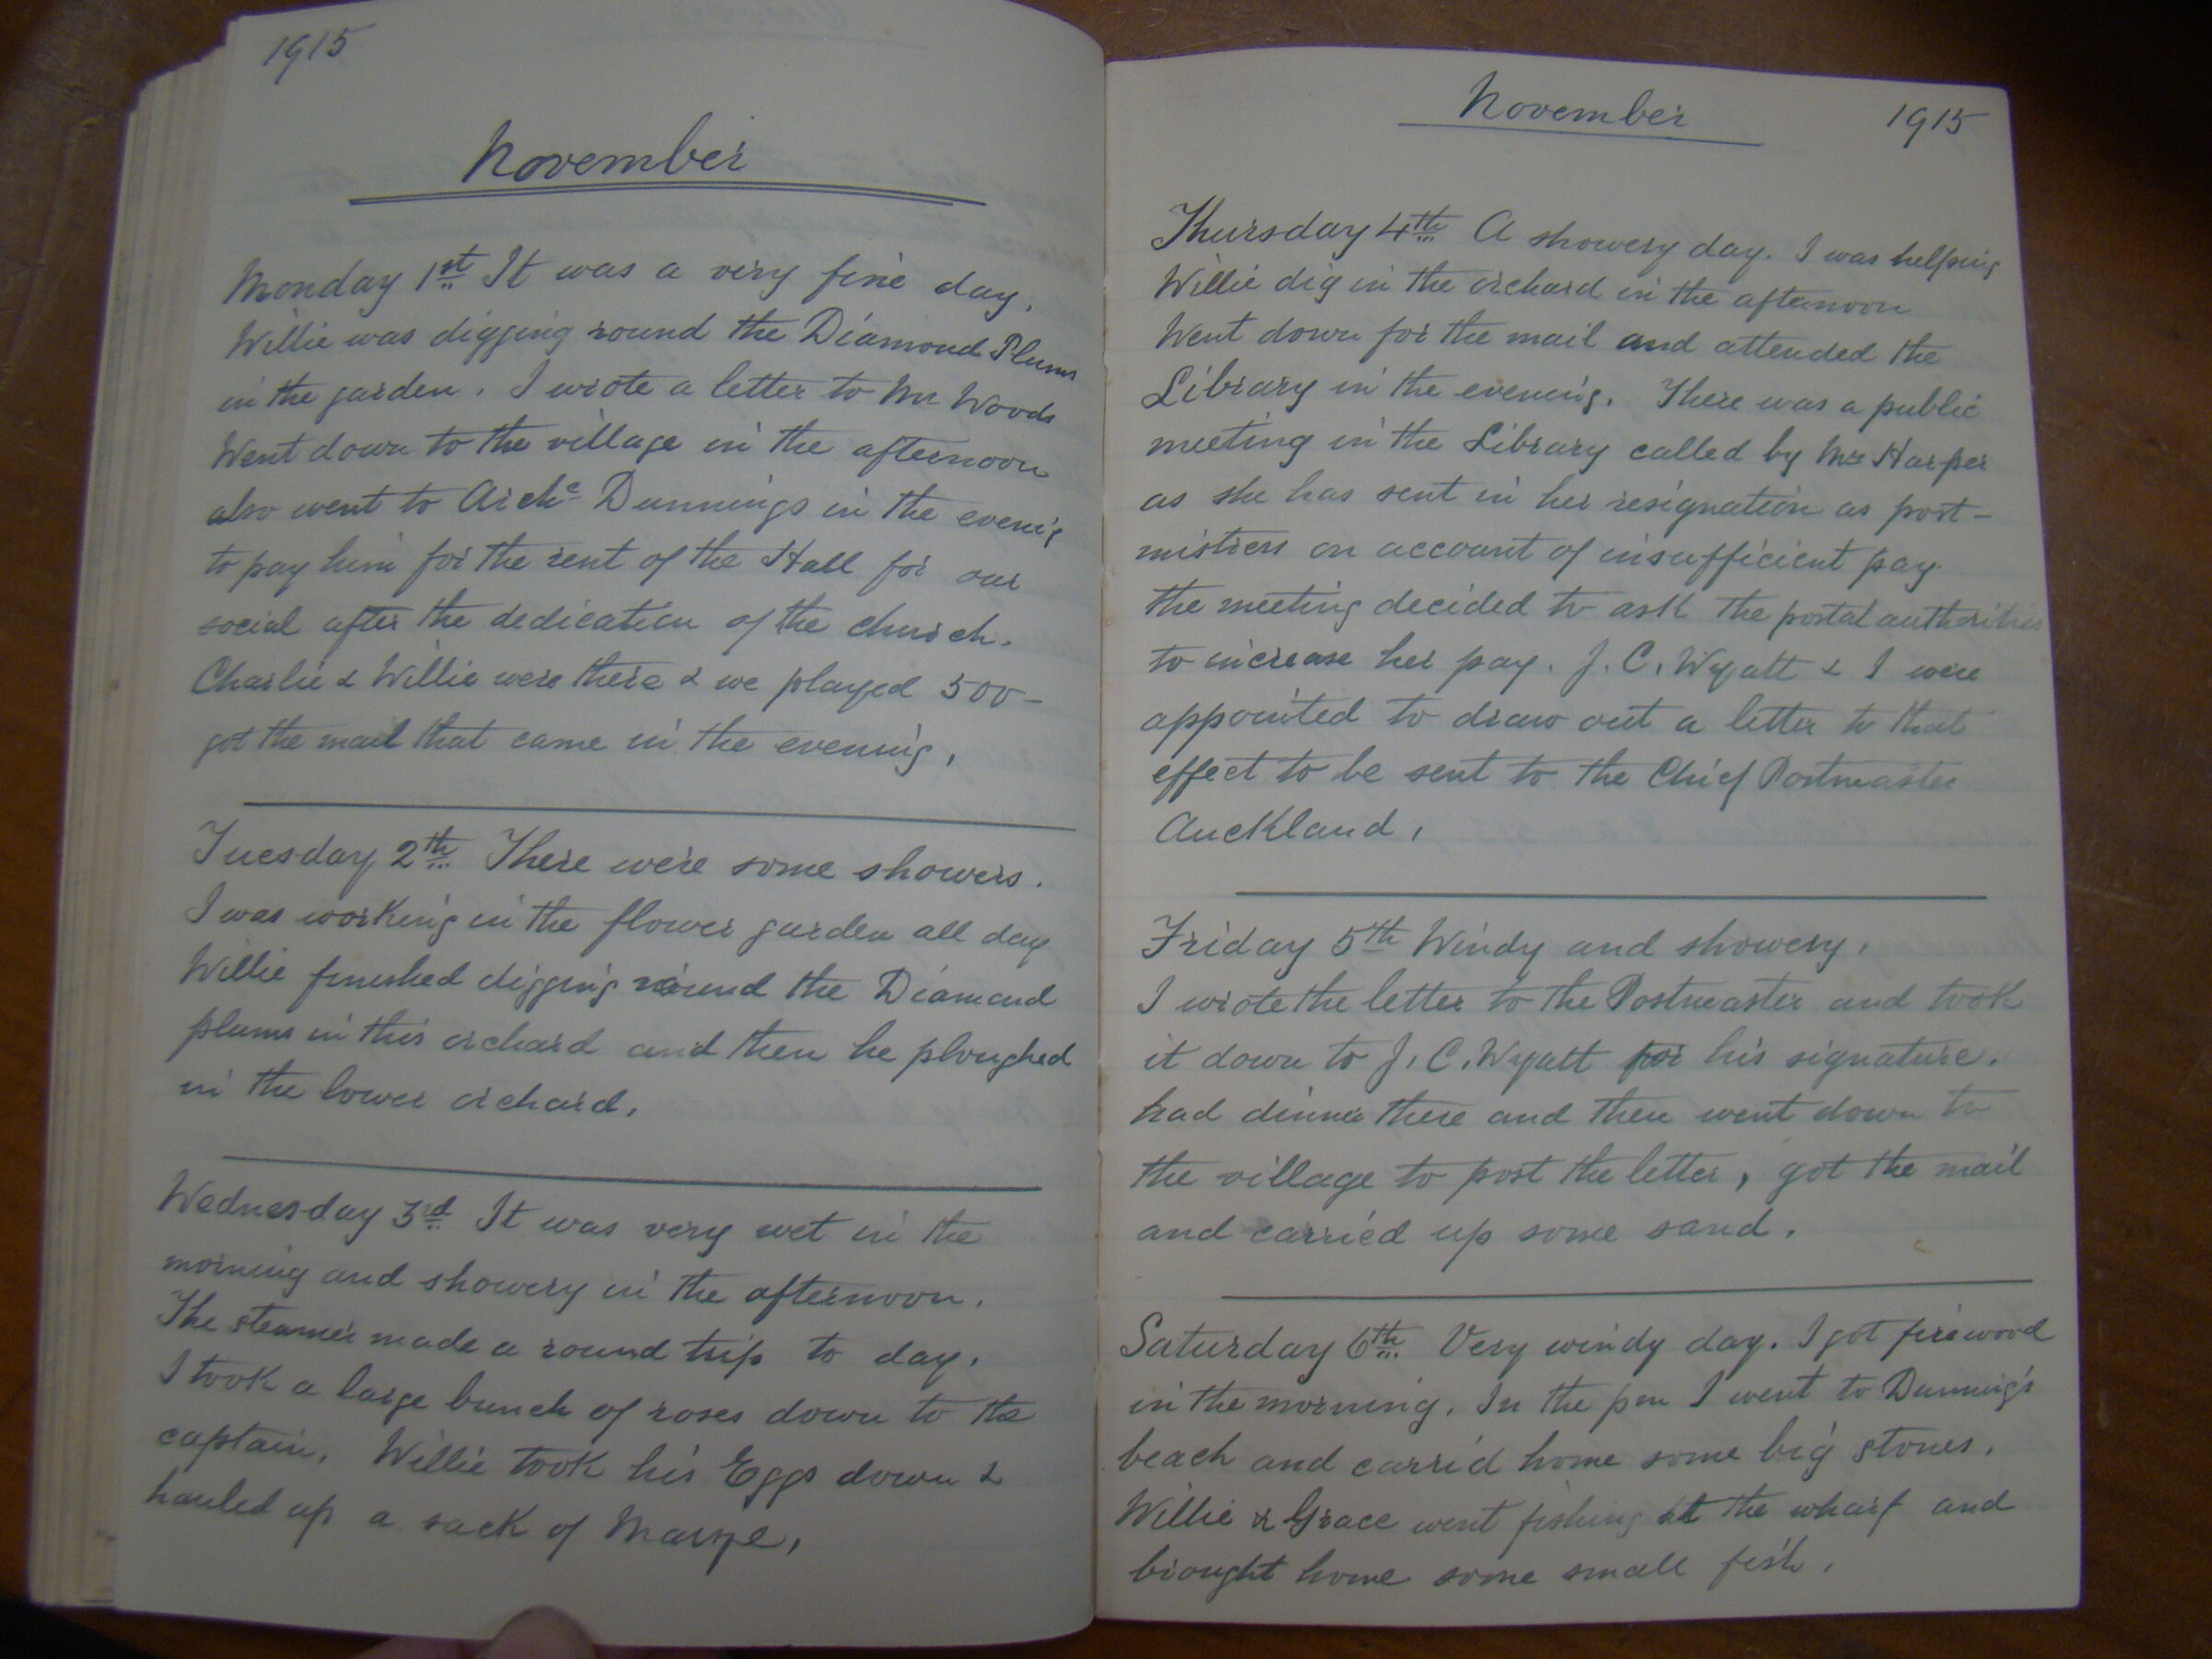 1915
November
Monday 1st It was a very fine day.
Willie was digging round the Diamond Plums
in the garden. I wrote a letter to Mr Woods
Went down to the village in the afternoon
also went to Arche Dunnings in the evening
to pay him for the rent of the Hall for our
social after the dedication of the church.
Charlie & Willie were there & we played 500-
got the mail that came in the evening,
Tuesday 2th There were some showers.
I was working in the flower garden all day
Willie finished digging round the Diamond
plums in this orchard and then he ploughed
in the lower orchard,
Wednesday 3rd It was very wet in the
morning and showery in the afternoon.
The steamer made a round trip to day,
I took a large bunch of roses down to the
captain. Willie took his Eggs down &
hauled up a sack of Maize,
November 1915
Thursday 4th A showery day. I was helping
Willie dig in the orchard in the afternoon
Went down for the mail and attended the
Library in the evening. There was a public
meeting in the Library called by Mrs Harper
as she has sent in her resignation as post-
mistress on account of insufficient pay.
the meeting decided to ask the postal authorities
to increase her pay. J. C. Wyatt & I were
appointed to draw out a letter to that
effect to be sent to the Chief Postmaster
Auckland,
Friday 5th Windy and showery,
I wrote the letter to the Postmaster and took
it down to J. C. Wyatt for his signature.
had dinner there and then went down to
the village to post the letter, got the mail
and carried up some sand.
Saturday 6th Very windy day. I got firewood
in the morning. In the pm I went to Dunning's
beach and carrid home some big stones.
Willie & Grace went fishing at the wharf and
brought home some small fish,